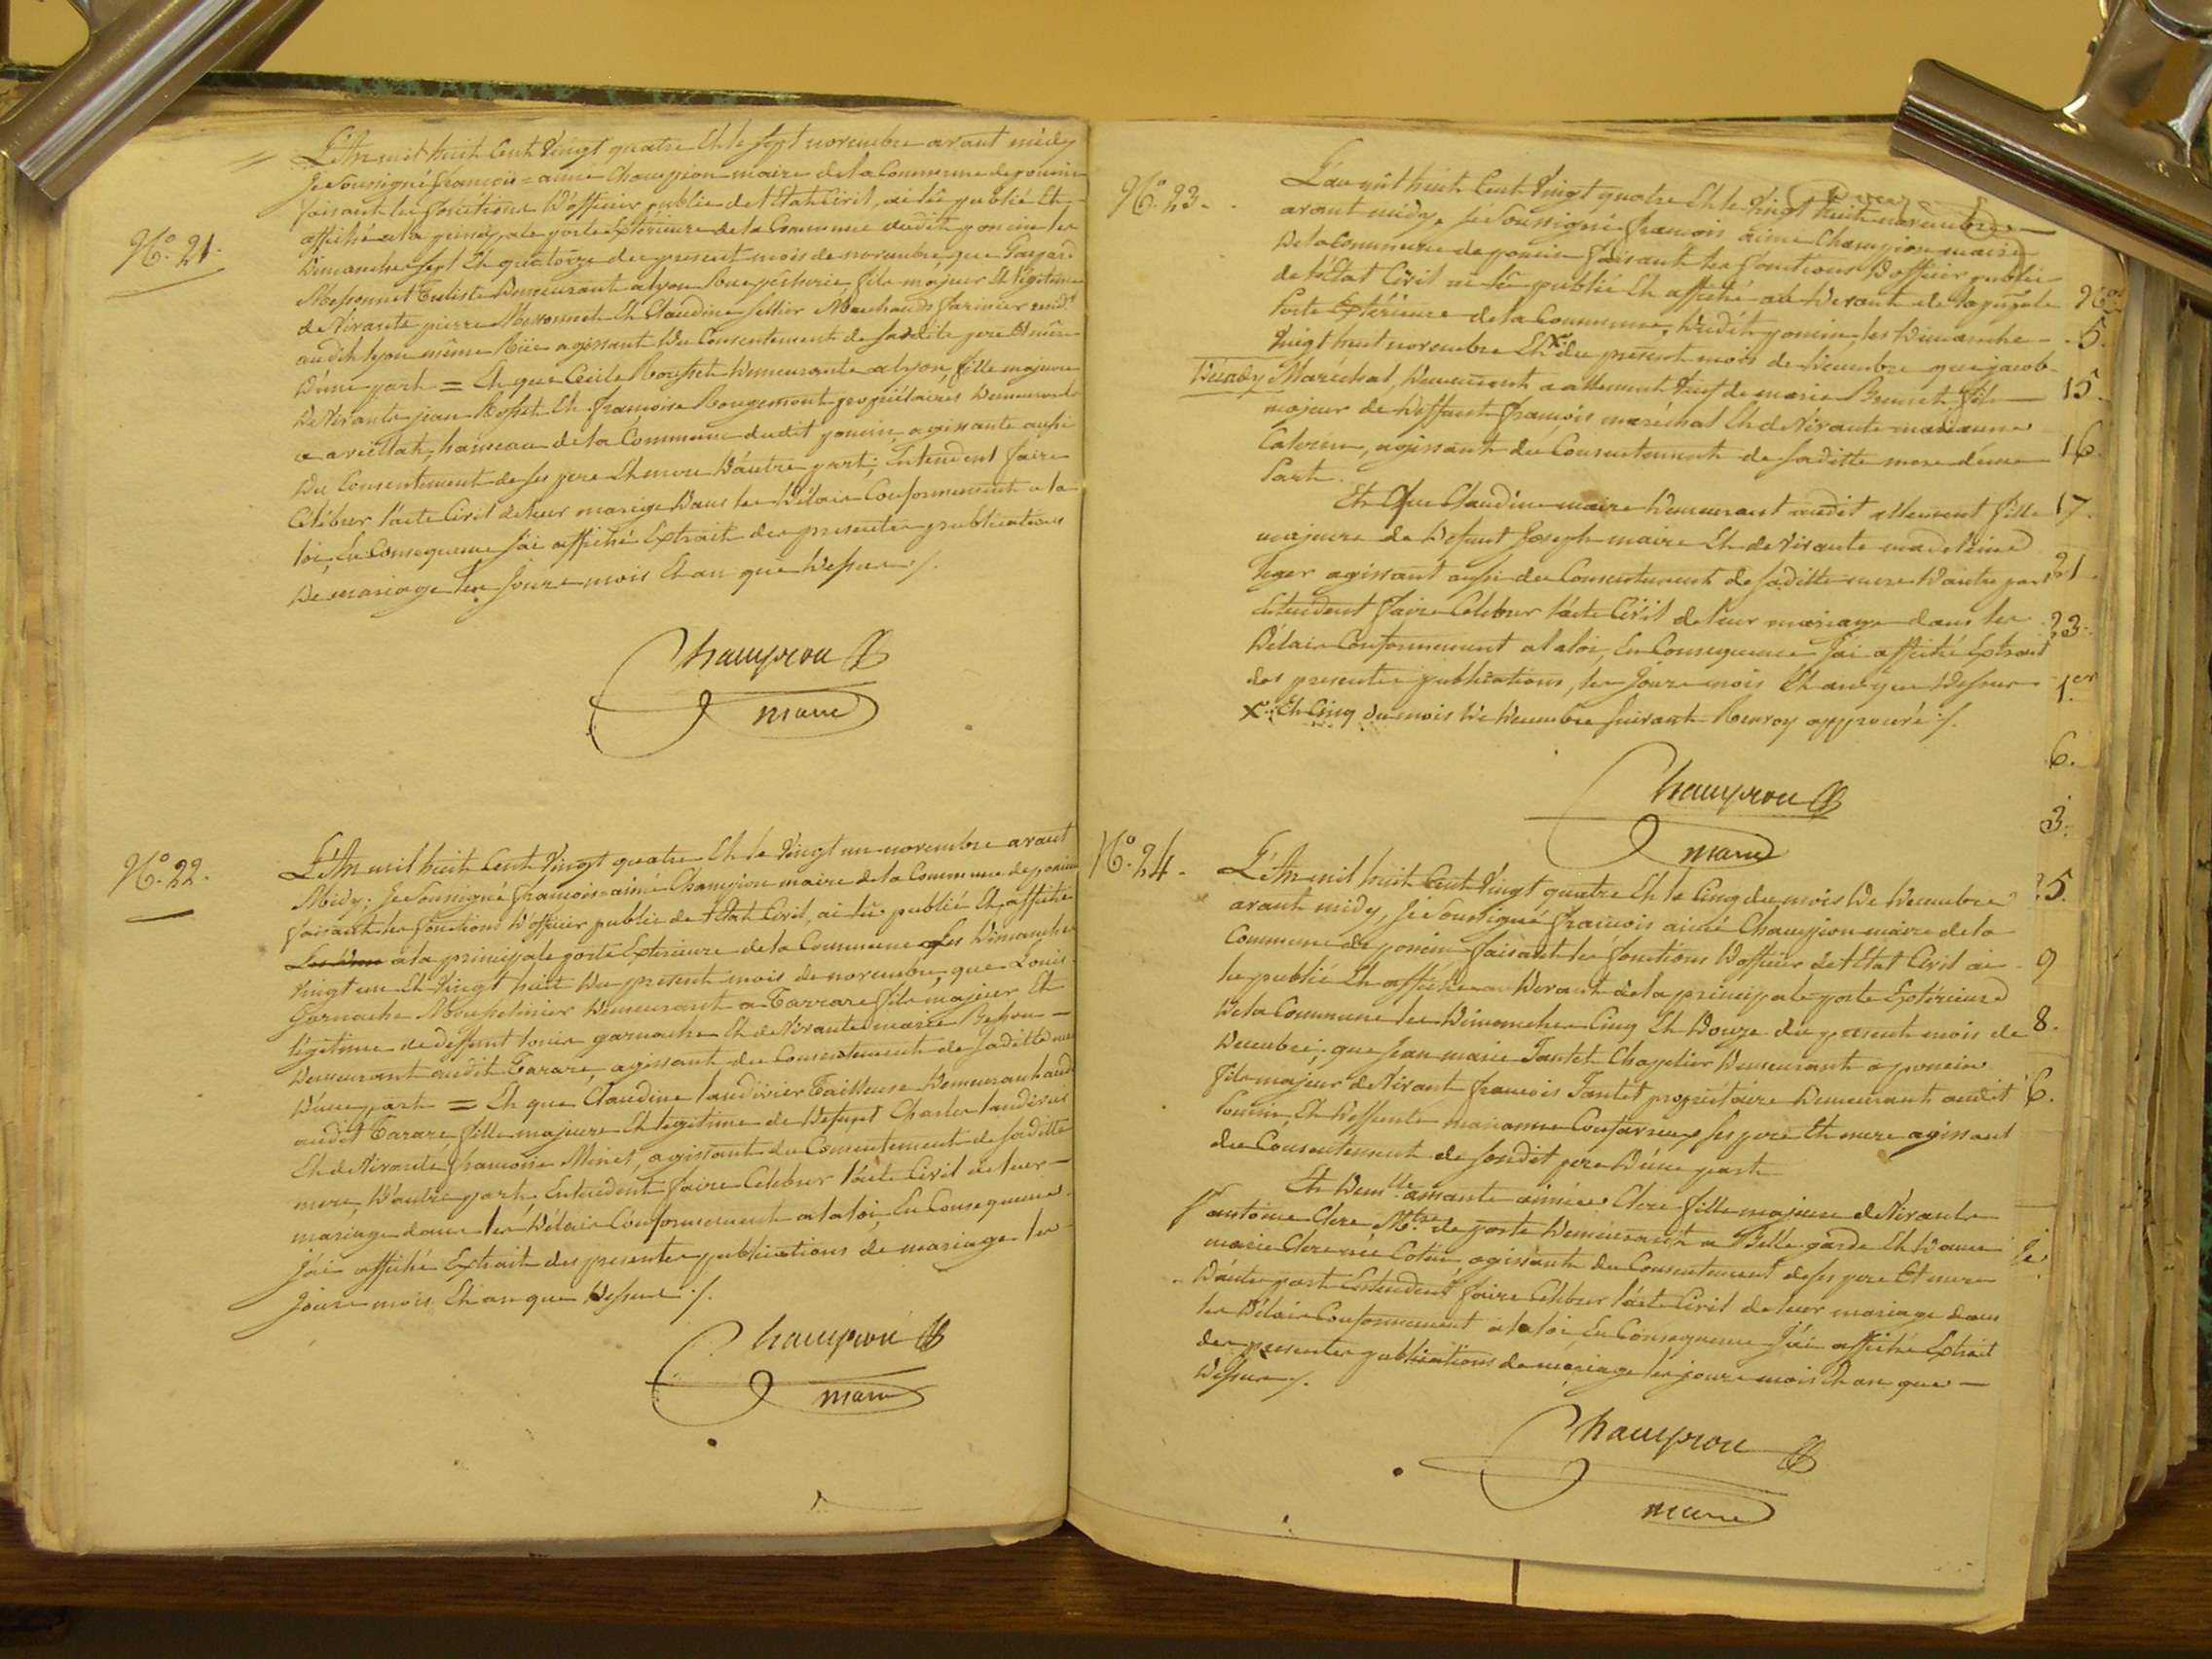 N.° 21.
L'An mil huit Cent Vingt quatre Et le Sept novembre avant midy
Je Soussigné françois = aimé Champion maire de la Commune de poncin
faisant les fonctions D'officier public de l'Etat Civil, ai lû publié Et
affiché a la principale porte Extérieure de la Commune dudit poncin les
Dimanches sept Et quatorze du present mois de novembre, que Gaspard
Messonnet Tuliste Demeurant a lyon Rue pecherie, fils majeur Et légitime
de Vivants pierre Messonnet Et Claudine Sellier Marchands farinier resid.t
audit lyon même Rüe agissant Du Consentement de sesdits pere Et mère
D'une part = Et que Cécile Rousset Demeurante a lyon, fille majeure
De Vivants jean Rosset Et françoise Rougemont propriétaires Demeurants
a avéittah, hameau de la Commune dudit poncin, agissante aussi
Du Consentement de ses pere Et mere D'autre part; Intendent faire
Célébrer l'acte Civil de leur mariage Dans les Délais Conformement a la
loi, En Consequence j'ai affiché Extrait des presentes publications
De mariage les Jours mois Et an que Dessus ./.
Champion
maire
N.° 22.
L'An mil huit Cent Vingt quatre Et le Vingt un novembre avant
Midy; Je Soussigné françois-aimé Champion maire de la Commune de poncin
faisant les fonctions D'officier public de l'Etat Civil, ai lû publié Et affiché
a la principale porte Exterieure de la Commune Les Dimanches
Vingt un Et Vingt huit Du present mois de novembre, que Louis
Garnache Mousselinier Demeurant a Tarrare fils majeur Et
légitime de deffunt louis garnache Et de Vivante marie Besson
Demeurant audit Tarare, agissant du Consentement de sadite mere
D'une part = Et que Claudine laudivier Tailleuse Demeurant
audit Tarare, fille majeure Et légitime de Defunt Charles laudivier
Et de Vivante françoise Minet, agissant du Consentement de saditte
mere, D'autre part, Entendent faire Celebrer l'acte Civil de leur
mariage dans les Délais Conformement a la loi, En Consequence
j'ai affiché Extrait des presentes publications de mariage les
Jours mois Et an que Dessus ./.
Champion
maire
N.° 23.
L'an mil huit Cent Vingt quatre Et le Vingt huit novembre
avant midy, Je Soussigné françois aimé Champion maire
De la Commune de poncin faisant les fonctions D'officier public
de l'Etat Civil ai lû publié Et affiché au Devant de la principale
Porte Extérieure de la Commune, Dudit poncin, les Dimanche
Vingt huit novembre Et X du present mois de Decembre que jacob
Maréchal, Demeurant a allement Veuf de marie Brunet, fils
majeur de Deffunt françois maréchal Et de Vivante marianne
agissant du Consentement de saditte mere d'une
Part.
Et Que Claudine maire Demeurant audit allement fille
majeure de Defunt Joseph maire Et de Vivante madeleine
leger agissant aussi du Consentement de saditte mere D'autre part
Entendent faire Celebrer l'acte Civil de leur mariage dans les
Délais Conformement a la loi, En Consequence j'ai affiché Extrait
des presentes publications, les Jours mois Et an que Dessus
X Et Cinq du mois De Decembre suivant Renvoy approuvé ./.
Champion
maire
N.° 24.
L'An mil huit Cent Vingt quatre Et le Cinq du mois De Decembre
avant midy, Je Soussigné françois aimé Champion maire de la
Commune de poncin faisant les fonctions D'officier de l'Etat Civil ai
lu publié Et affiché au Devant de la principale porte Extérieure
De la Commune les Dimanches Cinq Et Douze du present mois de
Decembre; que Jean marie Tantet Chapelier Demeurant a poncin
fils majeur de Vivant françois Tantet propriétaire Demeurant audit
Poncin Et Deffunte marianne Confavreux ses pere Et mere agissant
du Consentement de sondit pere D'une part
Et Dem.lle amante aimée Clerc fille majeure de Vivants
antoine Clerc M.tre de poste Demeurant a Bellegarde Et Dame
marie Clerc née Cottin, agissante du Consentement de ses pere Et mere
D'autre part Entendent faire Célébrer l'acte Civil de leur mariage dans
les Délais Conformement a la loi, En Consequence j'ai affiché Extrait
des presentes publications de mariage les jours mois Et an que
Dessus ./.
Champion
maire
5.
15.
16.
17.
21.
23.
1er
6.
3.
25.
9
8.
6.